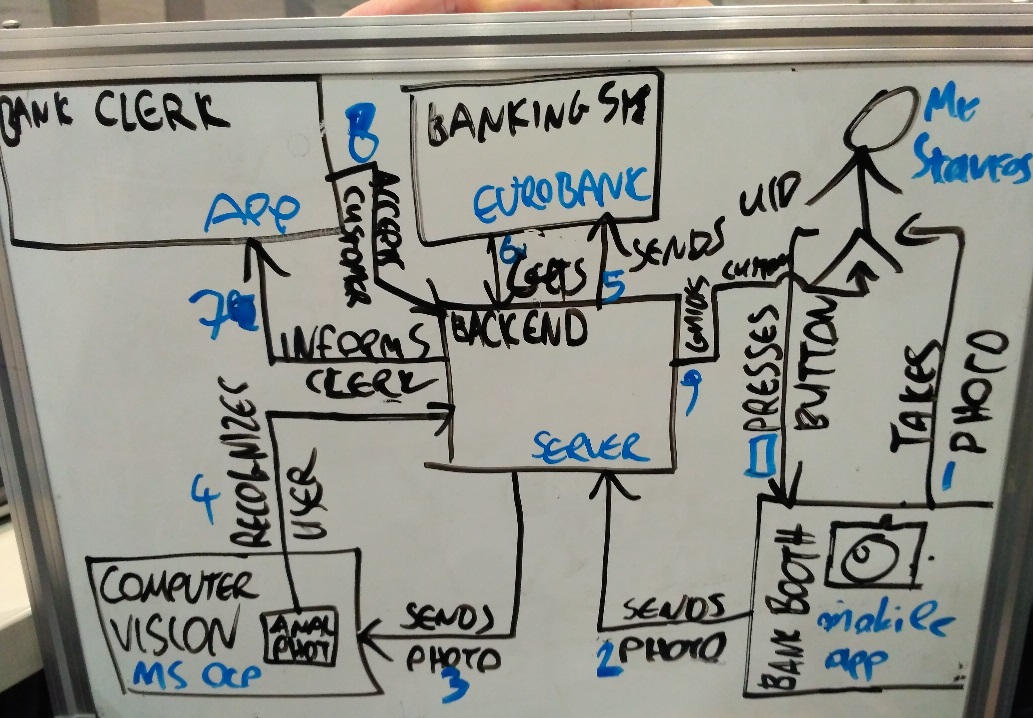 BANK CLERK
APP
8
ACCEPTS
CUSTOMER
BANKING SYS
EUROBANK
Mr
Stavros
UID
6
GETS
5
SENDS
7
INFORMS
CLERK
BACKEND
SERVER
9
PRESSES
BUTTON
0
TAKES
PHOTO
1
4
RECOGNIZES
USER
COMPUTER
VISION
ANAL
PHOT
MS OCP
SENDS
PHOTO
3
SENDS
2 PHOTO
BANK BOOTH
mobile
app